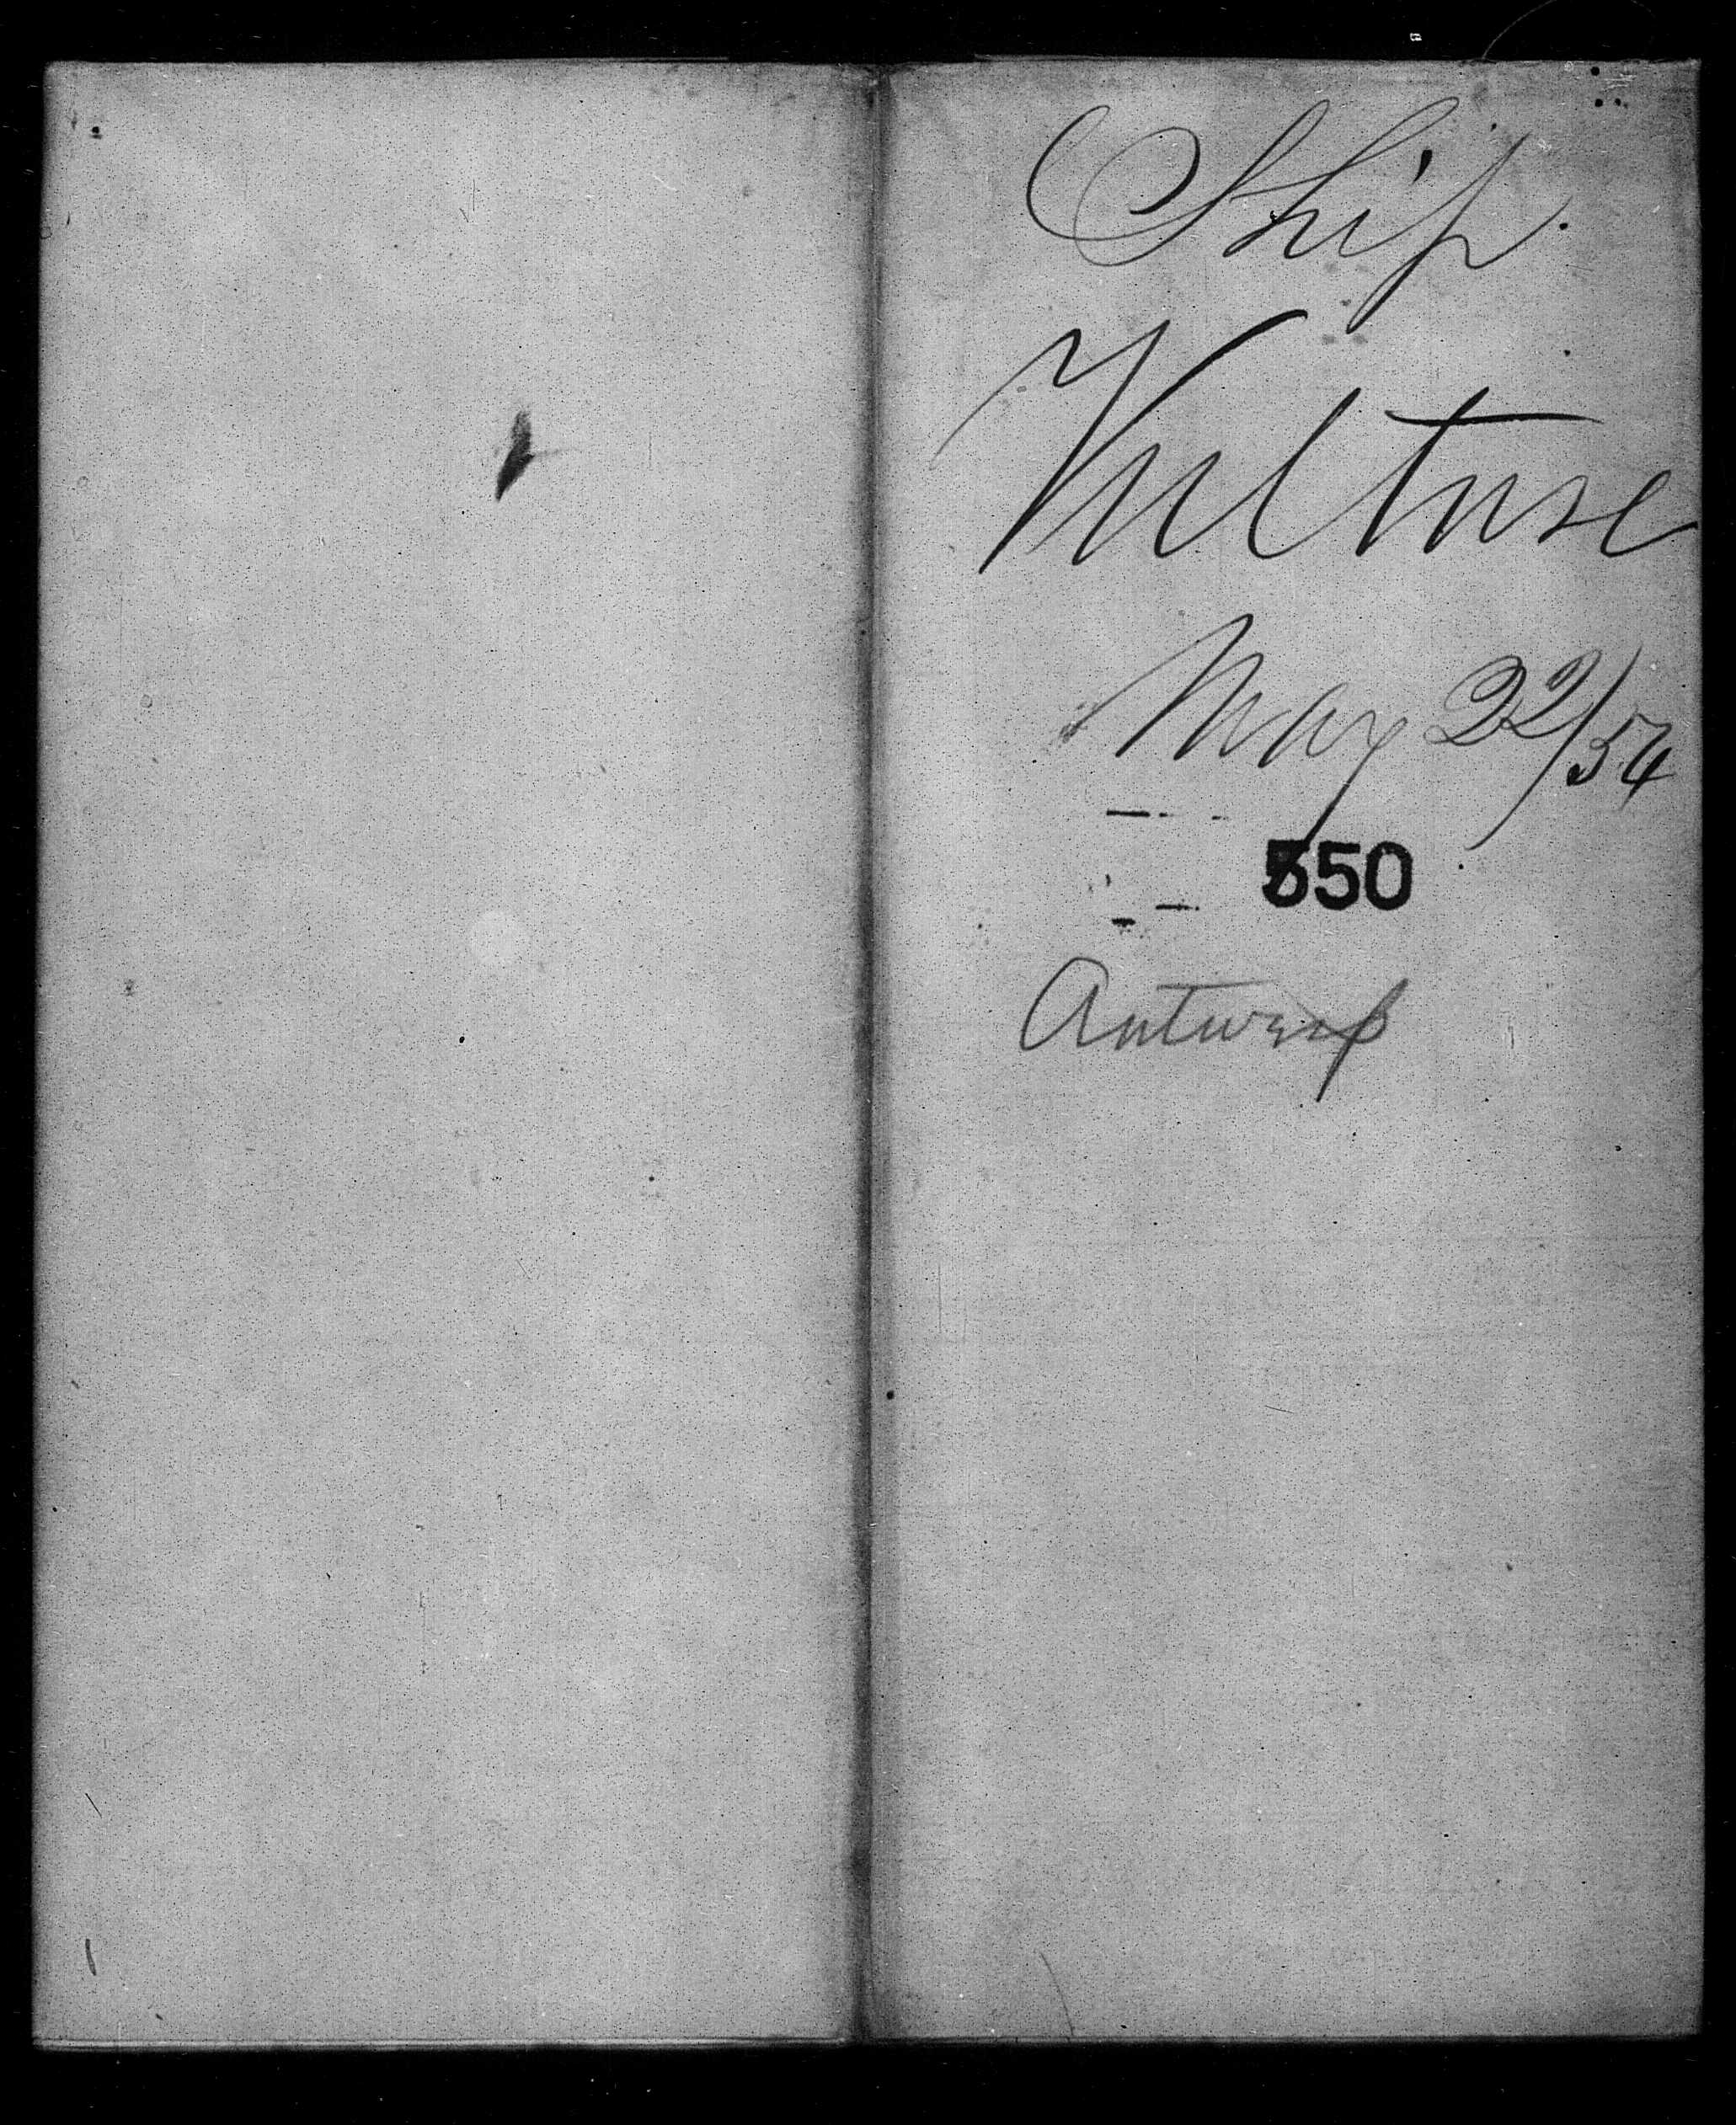 Ship
Vulture
May 22/54
550
Antwerp